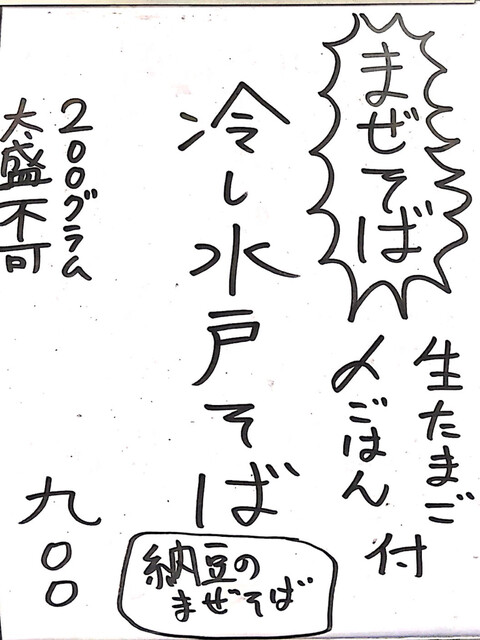 まぜそば
生たまご
〆ごはん
付
冷し水戸そば
納豆の
まぜそば
200グラム
大盛不可
九〇〇